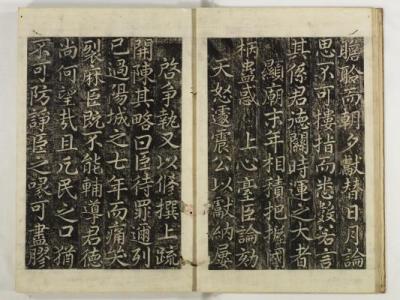 膽聆而朝夕獻替日月論
思不可摟指而悉數若言
其係君德關時運之大者
顯廟末年相積把握國
柄蠱惑上心臺臣論劾
天怒遽震公以獻納屢
啓爭執又以修撰上疏
開陳其略曰臣待罪邇列
已過陽城之七年而痛哭
裂麻臣旣不能輔導君德
尚何望哉且凡民之口猶
不可防諍臣之喙可盡膠